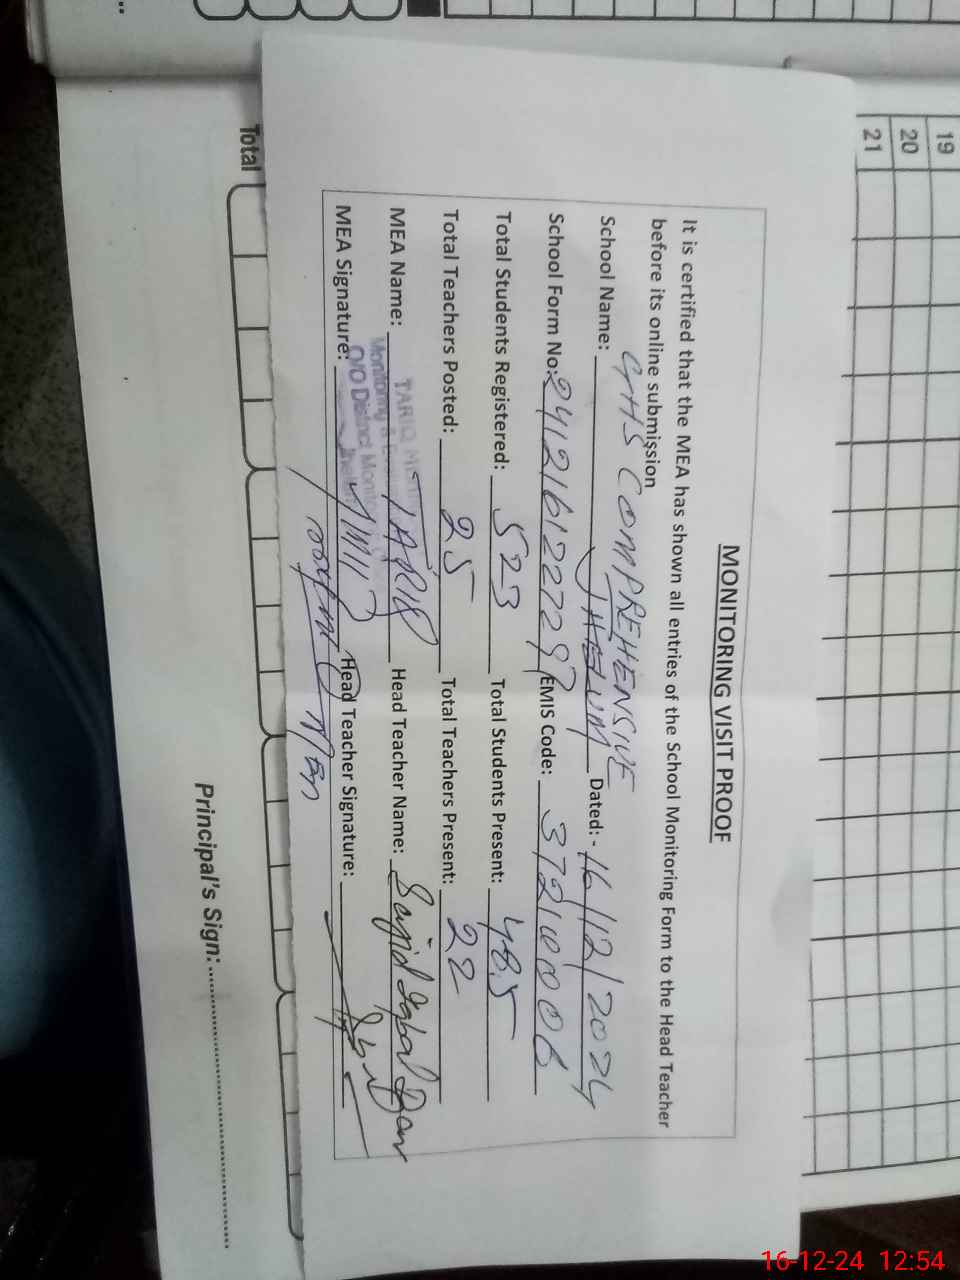 MONITORING VISIT PROOF
It is certified that the MEA has shown all entries of the School Monitoring Form to the Head Teacher
before its online submission
School Name: GHS COMPREHENSIVE JHELUM Dated:- 16/12/2024
School Form No: EMIS Code: 37210006
Total Students Registered: 523 Total Students Present: 485
Total Teachers Posted: 25 Total Teachers Present: 22
MEA Name: TARIQ Head Teacher Name: Sajid Iqbal Dar
MEA Signature: Head Teacher Signature:
TARIQ
Monitoring &
O/O District
Total
Principal's Sign:
19
20
21
16-12-24 12:54